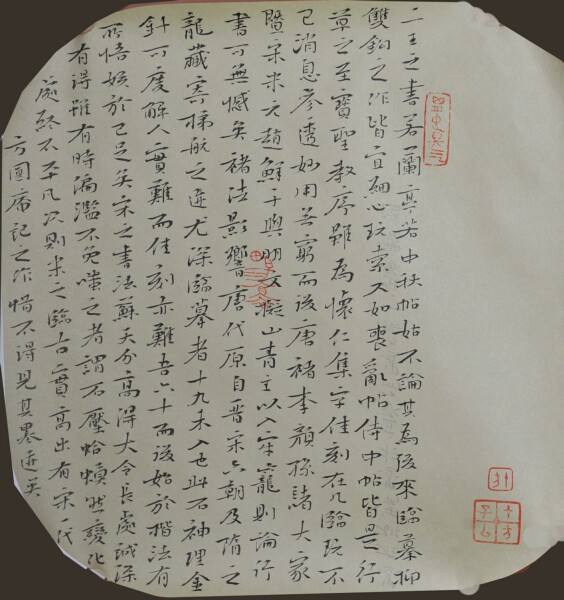 二王之書若蘭亭若中秋帖姑不論其為後來臨摹抑
雙鉤之作皆宜細心玩索又如喪亂帖侍中帖皆是行
草之至寶聖教序雖為懷仁集字佳刻在几臨玩不
已消息參透妙用無窮而後唐褚李顏孫諸大家
暨宋米元趙鮮于與明文擬山青主以入牢籠則論行
書可無憾矣褚法影響唐代原自晉宋六朝及隋之
龍藏寺梯航之迹尤深臨摹者十九未入也此石神理金
針可度解人實難而佳刻亦難吾六十而後始於楷法有
所悟娛於己足矣宋之書法蘇天分高得大令長處誠深
有得雖有時偏濫不免嗤之者謂石壓蛤蟆然變化
處終不平凡次則米之臨古實高出有宋一代
方圓庵記之作惜不得見其墨迹矣